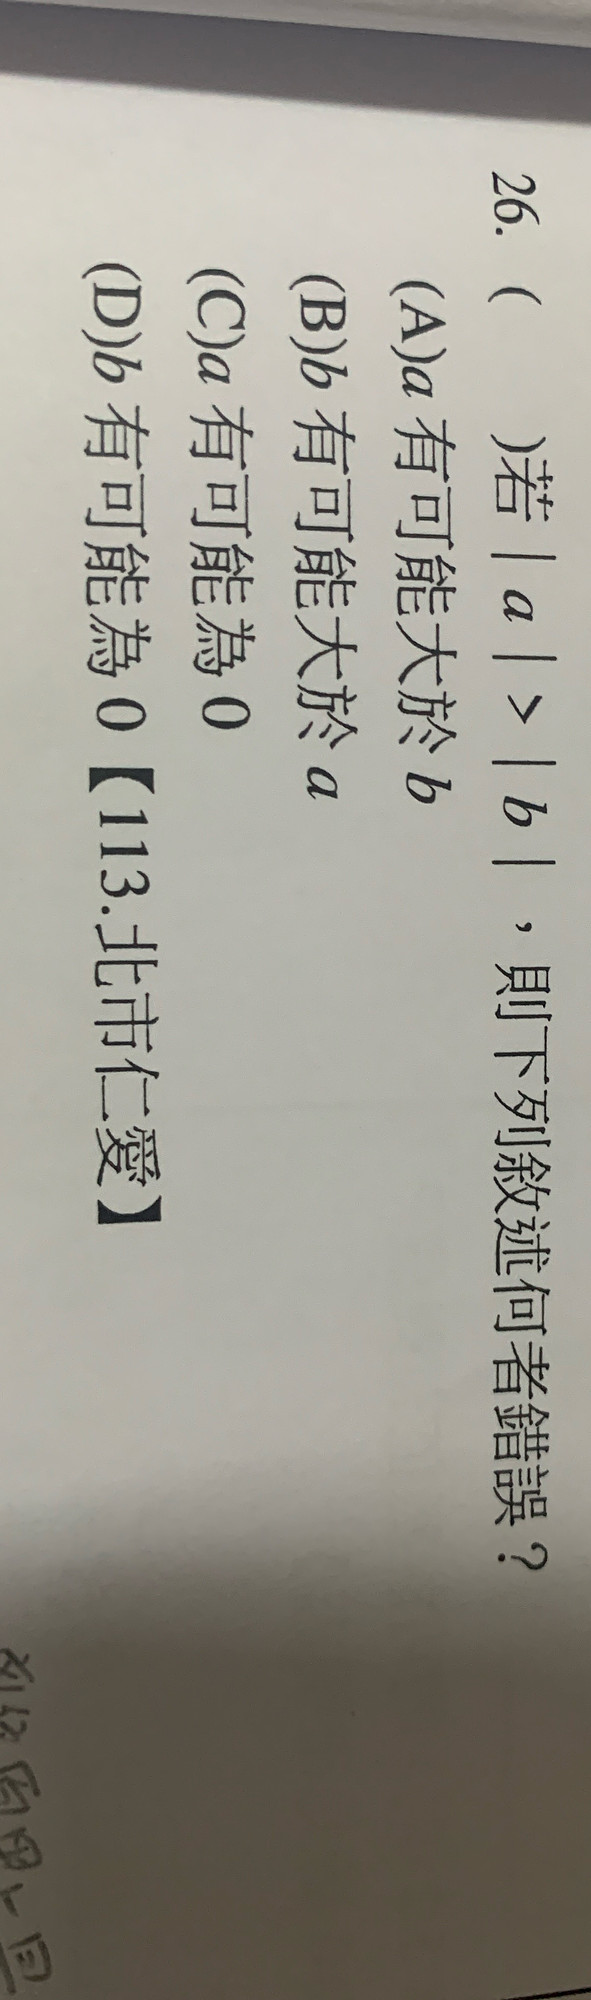 26. (　　)若｜a｜>｜b｜，則下列敘述何者錯誤？
(A)a 有可能大於 b
(B)b 有可能大於 a
(C)a 有可能為 0
(D)b 有可能為 0【113.北市仁愛】